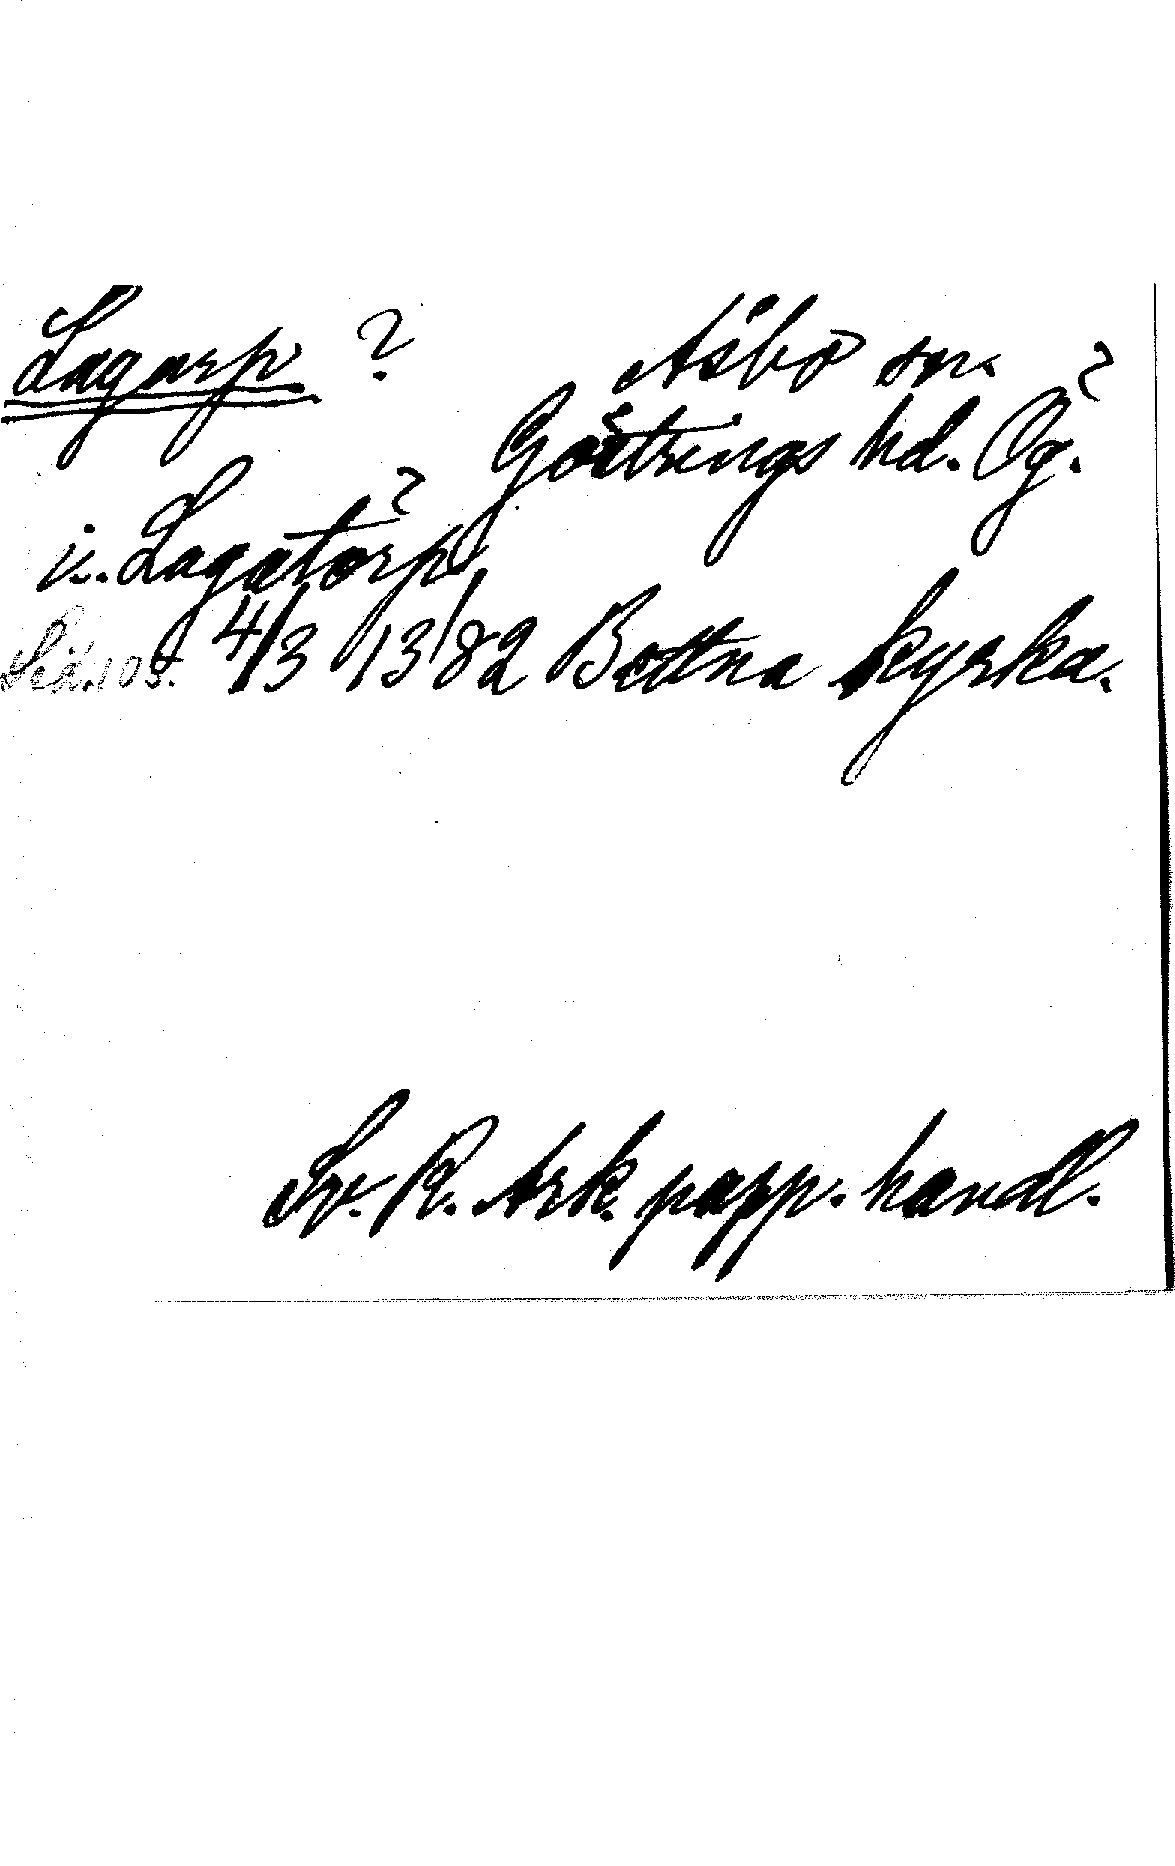 Lagarp ? Åsbo sn. ?
Göstrings hd. Ög.
i. Lagatorp ?
Sid. 105. 4/3 1382 Bottna kyrka.
Sv. R. Ark. papp. handl.